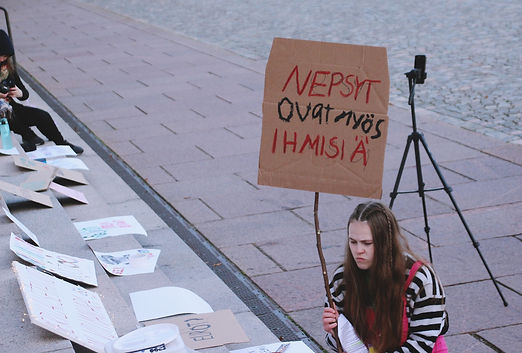 NEPSYT
OVAT MYÖS
IHMISIÄ